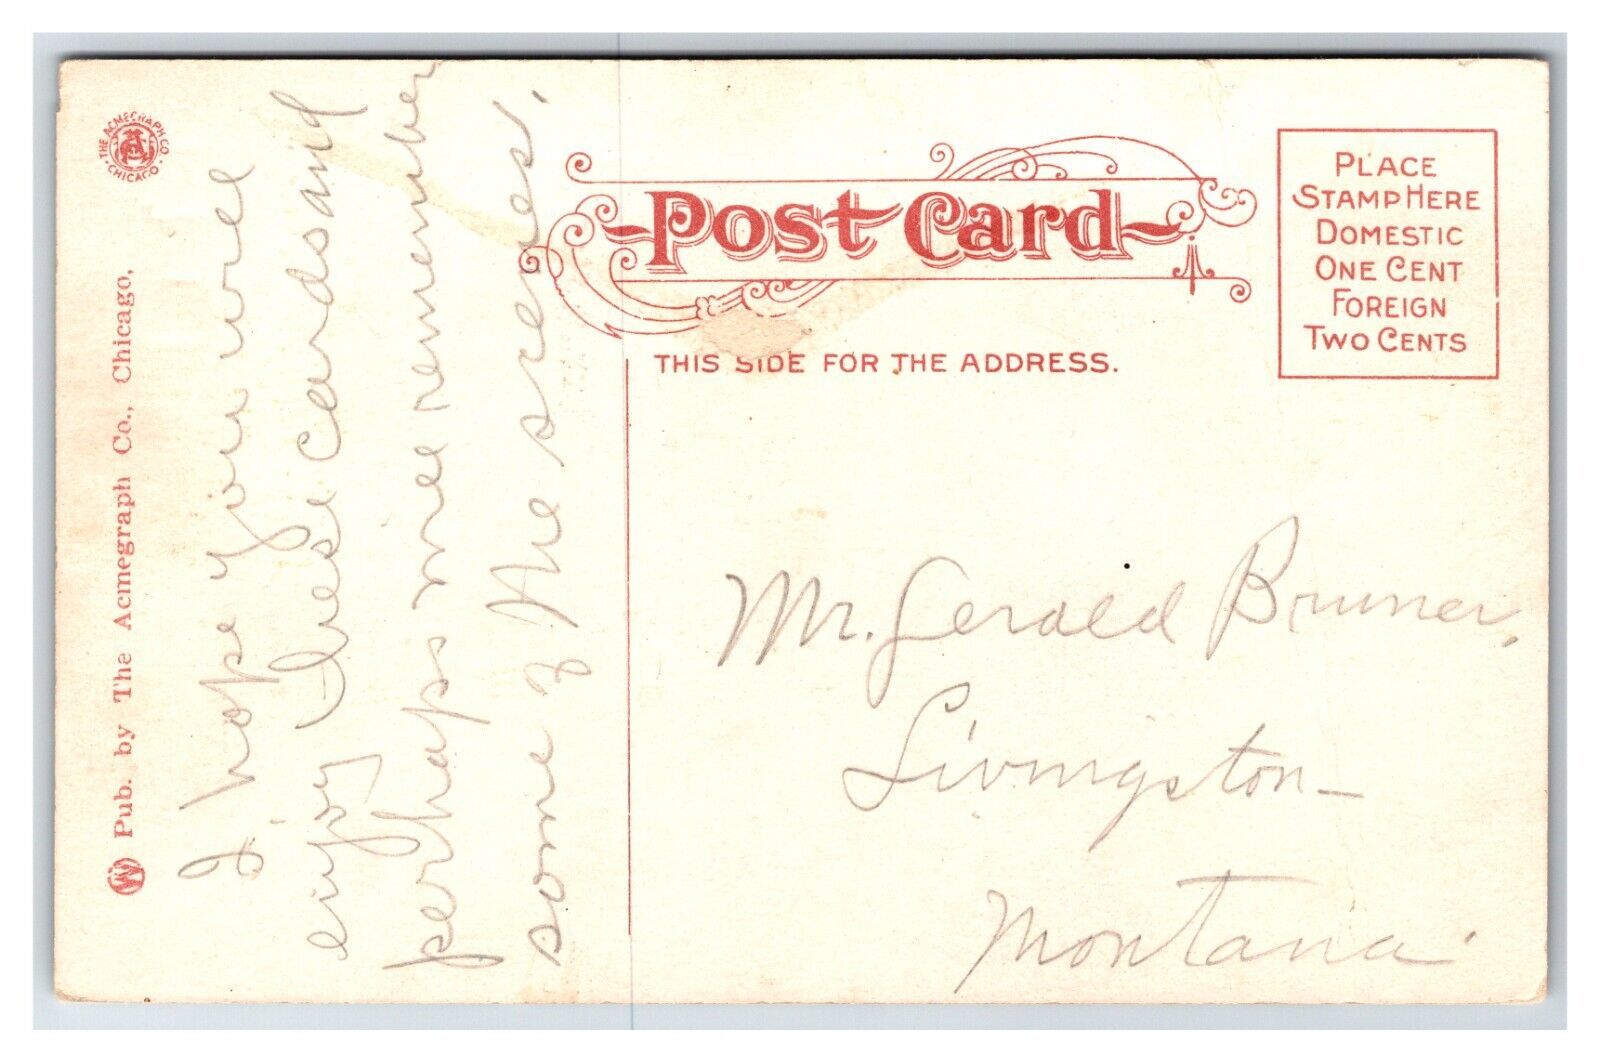 THE ACMEGRAPH CO.
CHICAGO
Pub. by The Acmegraph Co., Chicago,
I hope you will
enjoy these cards and
perhaps will remember
some of the scenes.
Post Card
THIS SIDE FOR THE ADDRESS.
PLACE
STAMP HERE
DOMESTIC
ONE CENT
FOREIGN
TWO CENTS
Mr. Gerald Bruner,
Livingston–
Montana.